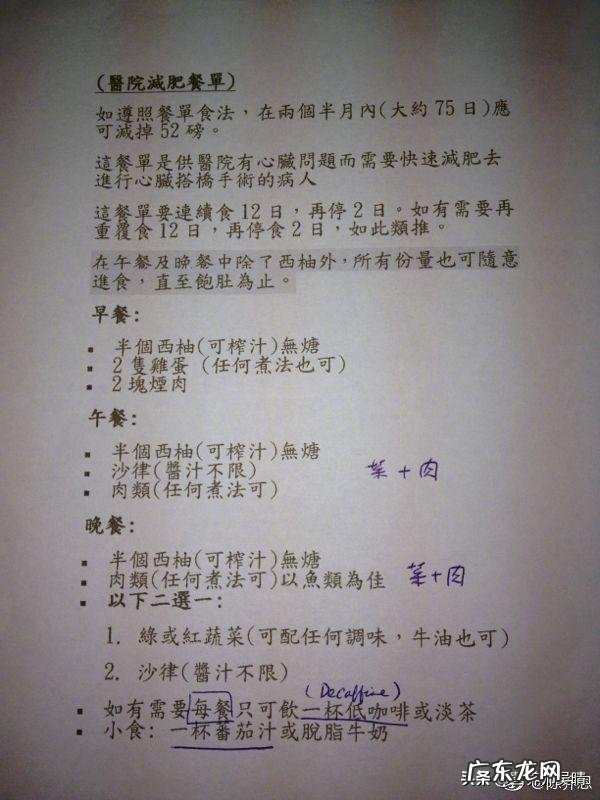 (醫院減肥餐單)
如遵照餐單食法，在兩個半月內(大約 75 日)應
可減掉 52 磅。
這餐單是供醫院有心臟問題而需要快速減肥去
進行心臟搭橋手術的病人
這餐單要連續食 12 日，再停 2 日。如有需要再
重覆食 12 日，再停食 2 日，如此類推。
在午餐及晚餐中除了西柚外，所有份量也可隨意
進食，直至飽肚為止。
早餐:
▪ 半個西柚(可榨汁)無熿
▪ 2 隻雞蛋 (任何煮法也可)
▪ 2 塊煙肉
午餐:
▪ 半個西柚(可榨汁)無熿
▪ 沙律(醬汁不限)
菜 + 肉
▪ 肉類(任何煮法可)
晚餐:
▪ 半個西柚(可榨汁)無熿
▪ 肉類(任何煮法可)以魚類為佳 菜+肉
▪ 以下二選一:
1. 綠或紅蔬菜(可配任何調味，牛油也可)
2. 沙律(醬汁不限)
(Decaffine)
▪ 如有需要每餐只可飲一杯低咖啡或淡茶
▪ 小食: 一杯蕃茄汁或脫脂牛奶
广东龙网